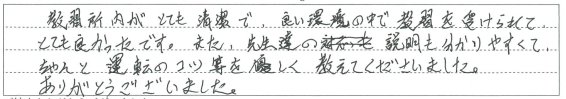 教習所内がとても清潔で、良い環境の中で教習を受けられて、
とても良かったです。また、先生達の説明も分かりやすくて、
ちゃんと運転のコツ等を優しく教えてくださいました。
ありがとうございました。